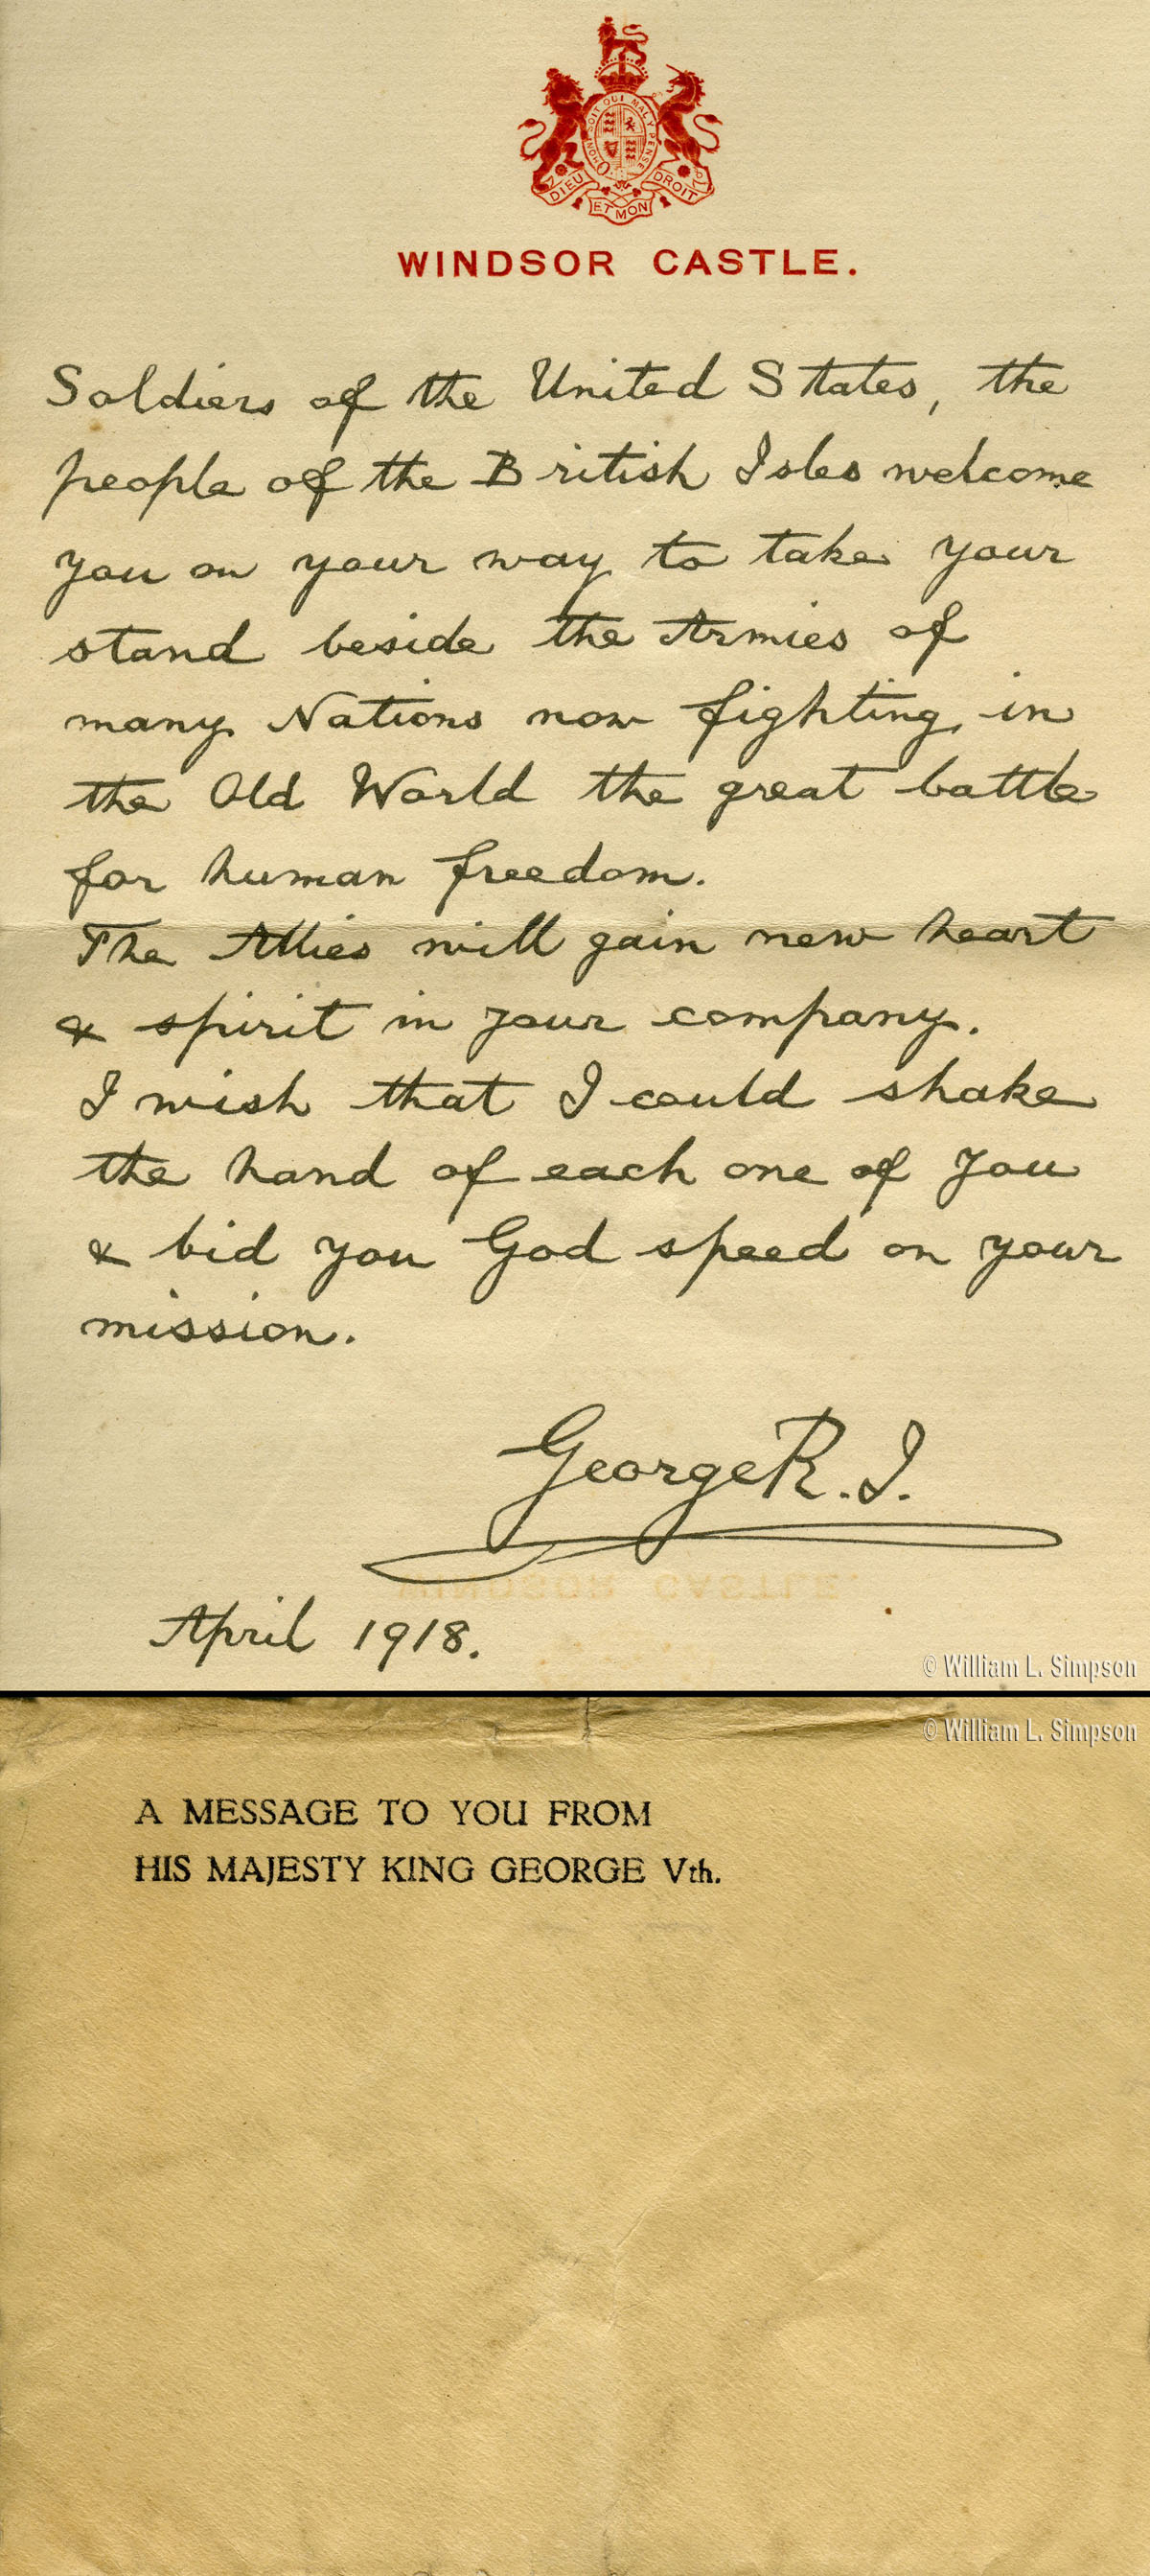 HONI SOIT QUI MAL Y PENSE
DIEU ET MON DROIT
WINDSOR CASTLE.
Soldiers of the United States, the
people of the British Isles welcome
you on your way to take your
stand beside the Armies of
many Nations now fighting in
the Old World the great battle
for human freedom.
The Allies will gain new heart
& spirit in your company.
I wish that I could shake
the hand of each one of you
& bid you God speed on your
mission.
George R.I.
WINDSOR CASTLE.
April 1918.
© William L. Simpson
© William L. Simpson
A MESSAGE TO YOU FROM
HIS MAJESTY KING GEORGE Vth.